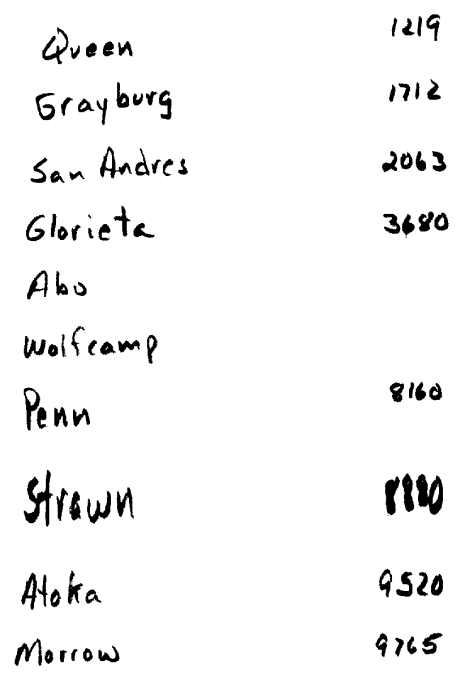 Queen 1219
Grayburg 1712
San Andres 2063
Glorieta 3680
Abo
Wolfcamp
Penn 8160
Strawn 8880
Atoka 9520
Morrow 9765